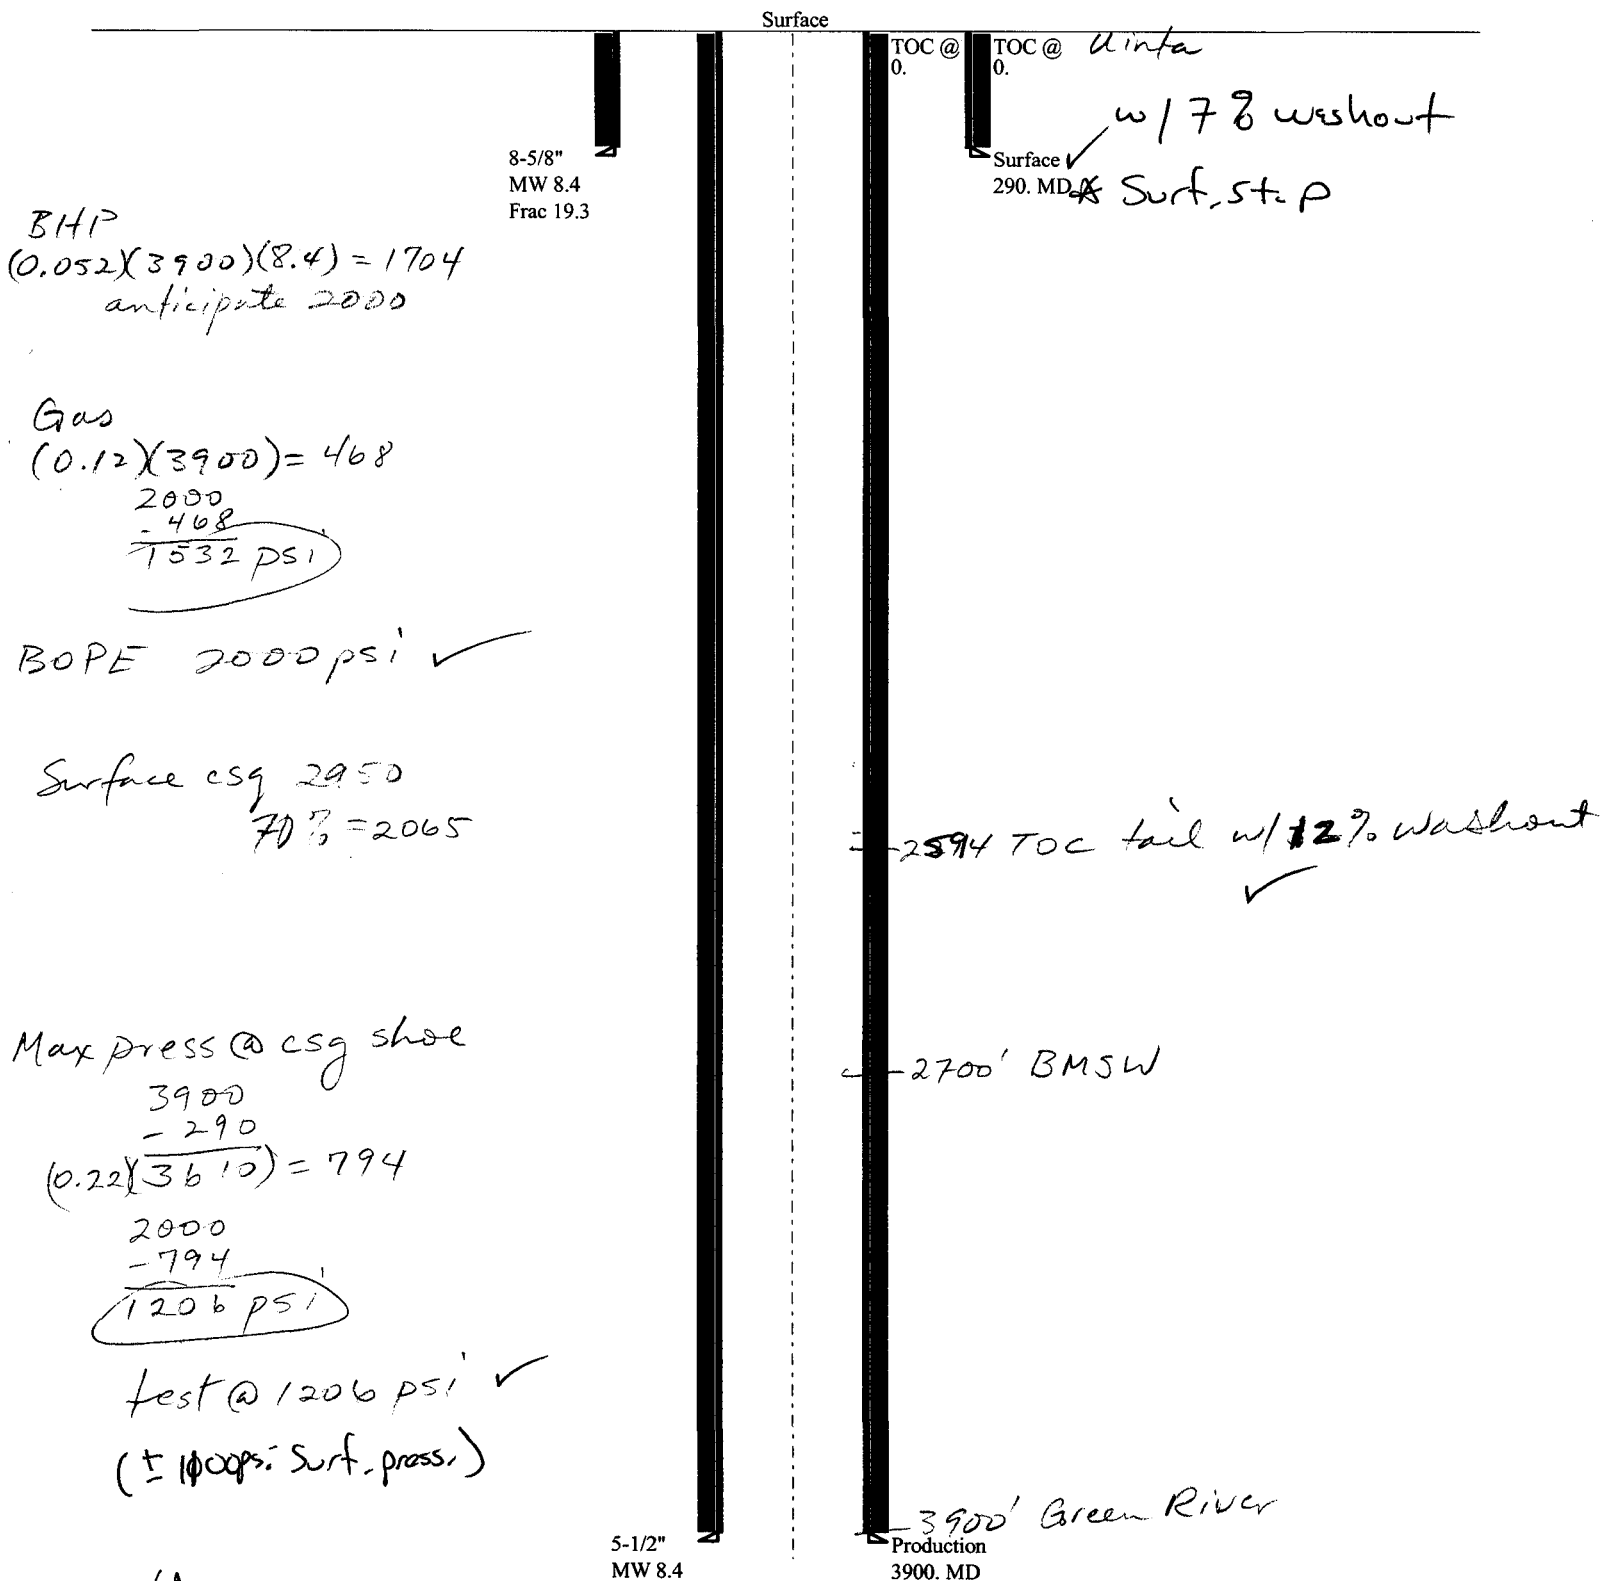 Surface
TOC @
0.
TOC @
0.
Uinta
w/ 7% washout
8-5/8"
MW 8.4
Frac 19.3
Surface ✓
290. MD
* Surf. stop
BHP
(0.052)(3900)(8.4) = 1704
anticipate 2000
Gas
(0.12)(3900) = 468
2000
- 468
1532 psi
BOPE 2000 psi ✓
Surface csg 2950
70% = 2065
2594 TOC tail w/ 12% washout
✓
Max press @ csg shoe
3900
- 290
(0.22)(3610) = 794
2000
- 794
1206 psi
2700' BMSW
test @ 1206 psi ✓
(± 1000psi Surf. press.)
3900' Green River
5-1/2"
MW 8.4
Production
3900. MD